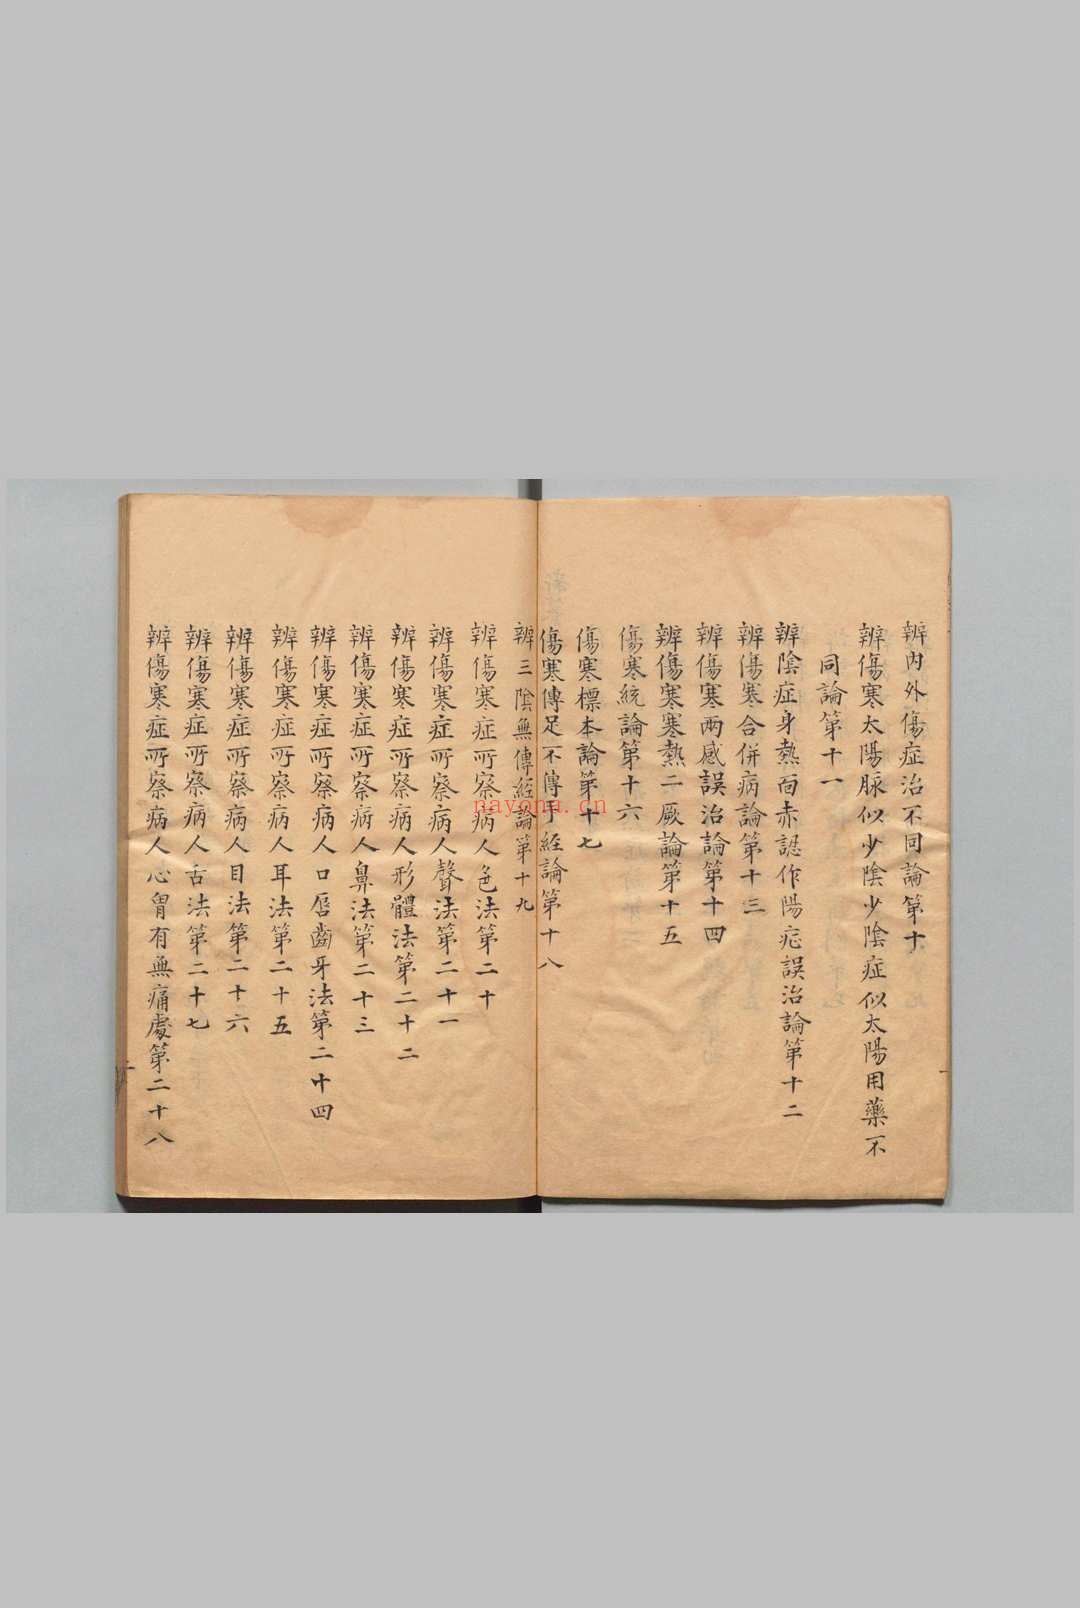 辨內外傷症治不同論第十
辨傷寒太陽脉似少陰少陰症似太陽用藥不
同論第十一
辨陰症身熱面赤認作陽症誤治論第十二
辨傷寒合併病論第十三
辨傷寒兩感誤治論第十四
辨傷寒寒熱二厥論第十五
傷寒統論第十六
傷寒標本論第十七
傷寒傳足不傳手經論第十八
辨三陰無傳經論第十九
辨傷寒症所察病人色法第二十
辨傷寒症所察病人聲法第二十一
辨傷寒症所察病人形體法第二十二
辨傷寒症所察病人鼻法第二十三
辨傷寒症所察病人口唇齒牙法第二十四
辨傷寒症所察病人耳法第二十五
辨傷寒症所察病人目法第二十六
辨傷寒症所察病人舌法第二十七
辨傷寒症所察病人心胃有無痛處第二十八
nayona.cn